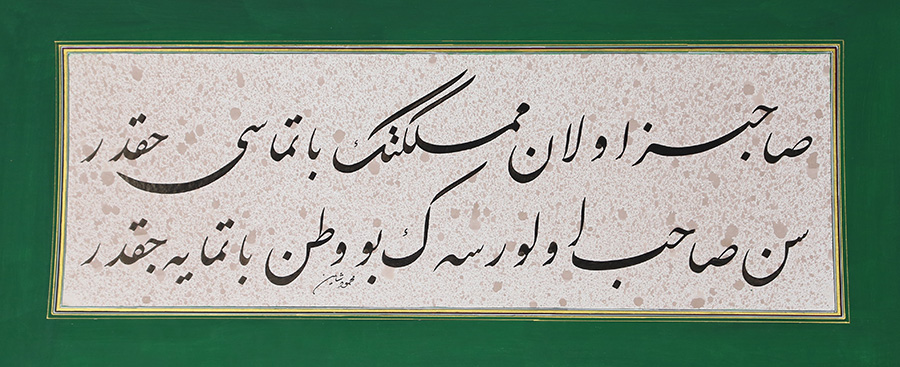 صاحبسز اولان مملكتك باتماسی حقدر
سن صاحب اولورسه ك بو وطن باتمایه جقدر
محمود شاهين